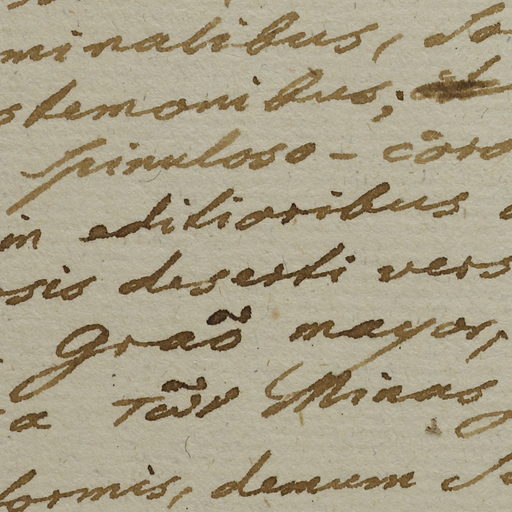 minalibus, do
stemonibus;
spinuloso - côro
in editioribus
osis deserti vers
Grão mayor,
a Minas
formis, demum